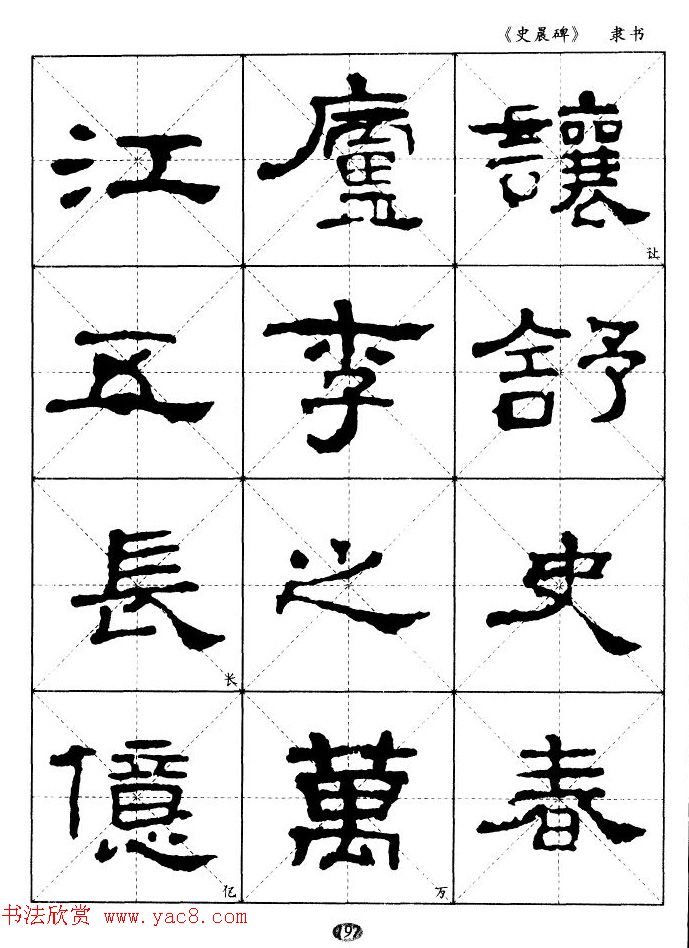 《史晨碑》 隶书
讓廬江
让
舒李五
史之長
长
春萬億
万 亿
书法欣赏 www.yac8.com